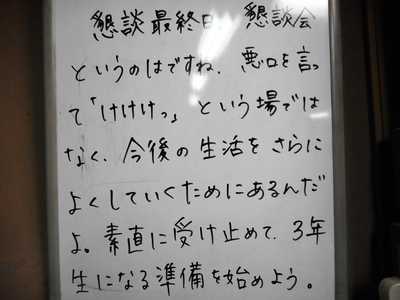 懇談最終日。懇談会
というのはですね、悪口を言っ
て「けけけっ」という場では
なく、今後の生活をさらに
よくしていくためにあるんだ
よ。素直に受け止めて、3年
生になる準備を始めよう。